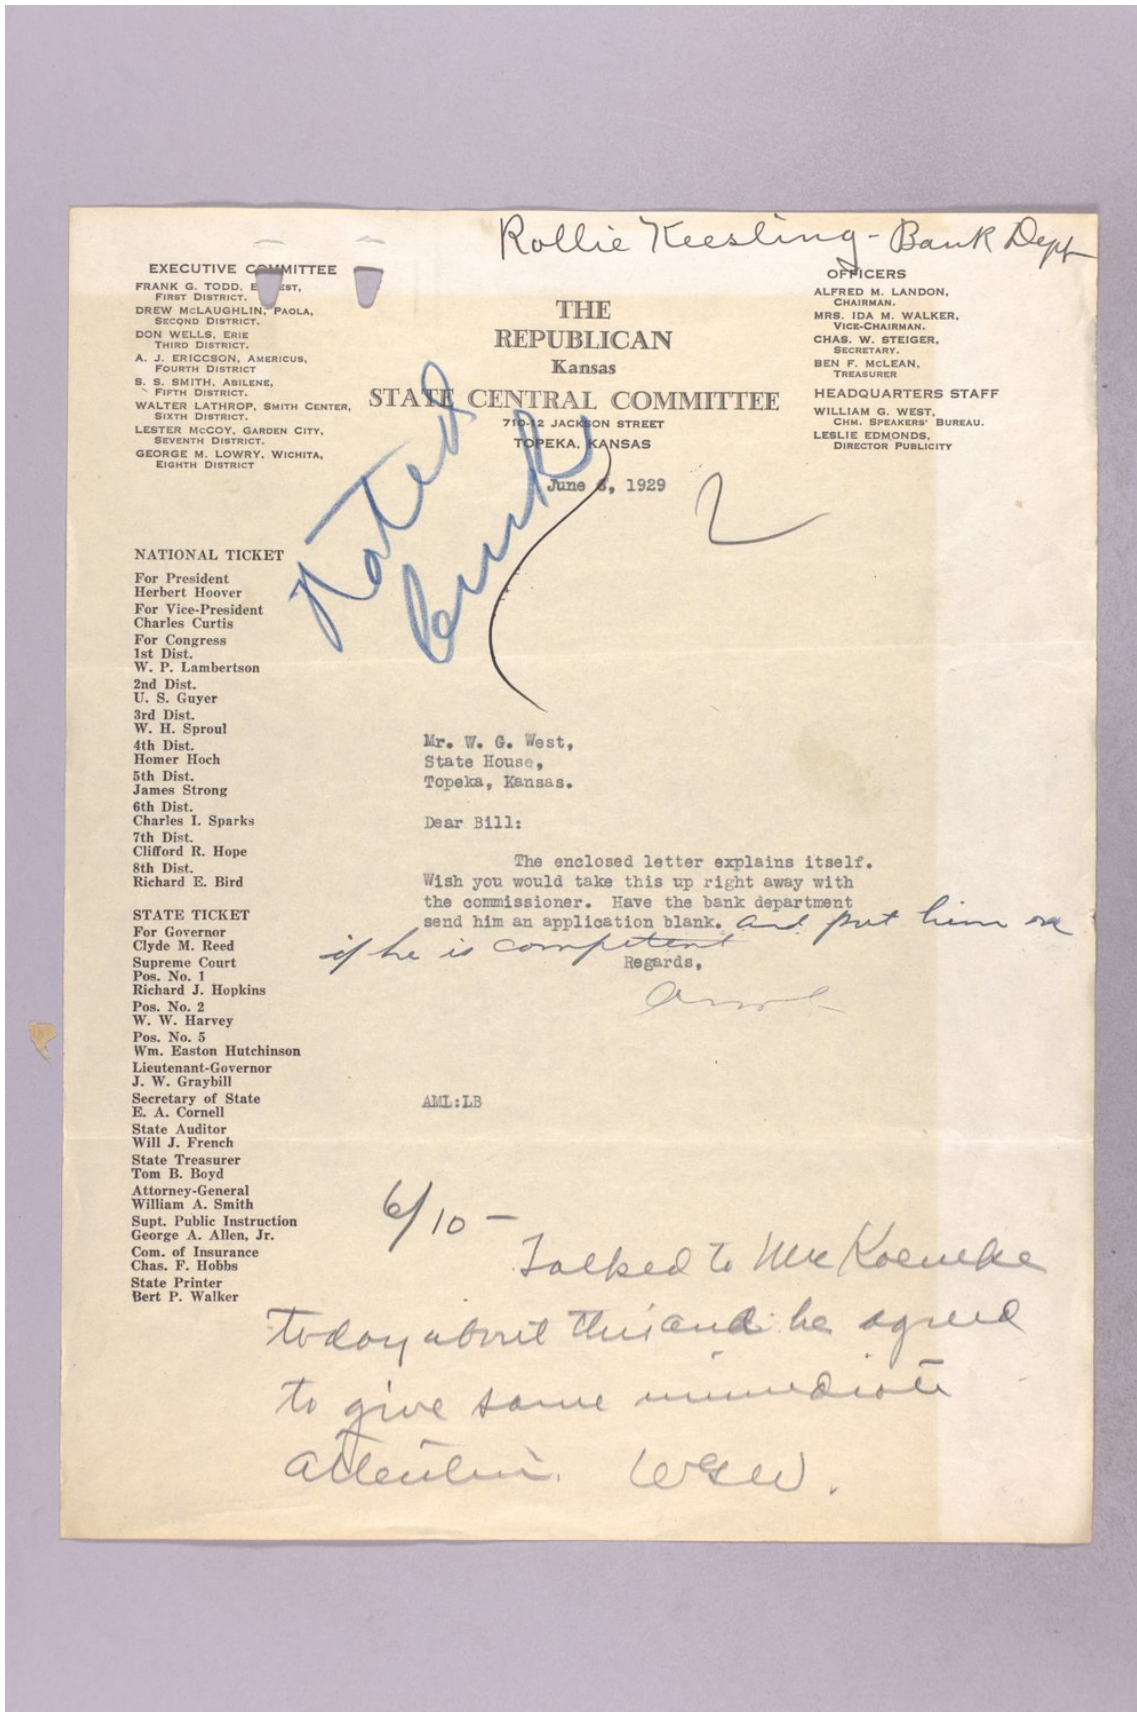 Rollie Keesling - Bank Dept
EXECUTIVE COMMITTEE
FRANK G. TODD,
FIRST DISTRICT.
DREW McLAUGHLIN, PAOLA,
SECOND DISTRICT.
DON WELLS, ERIE
THIRD DISTRICT.
A. J. ERICCSON, AMERICUS,
FOURTH DISTRICT
S. S. SMITH, ABILENE,
FIFTH DISTRICT.
WALTER LATHROP, SMITH CENTER,
SIXTH DISTRICT.
LESTER McCOY, GARDEN CITY,
SEVENTH DISTRICT.
GEORGE M. LOWRY, WICHITA,
EIGHTH DISTRICT
THE
REPUBLICAN
Kansas
STATE CENTRAL COMMITTEE
710-12 JACKSON STREET
TOPEKA, KANSAS
OFFICERS
ALFRED M. LANDON,
CHAIRMAN.
MRS. IDA M. WALKER,
VICE-CHAIRMAN.
CHAS. W. STEIGER,
SECRETARY.
BEN F. McLEAN,
TREASURER
HEADQUARTERS STAFF
WILLIAM G. WEST,
CHM. SPEAKERS' BUREAU.
LESLIE EDMONDS,
DIRECTOR PUBLICITY
June 6, 1929
Noted
NATIONAL TICKET
For President
Herbert Hoover
For Vice-President
Charles Curtis
For Congress
1st Dist.
W. P. Lambertson
2nd Dist.
U. S. Guyer
3rd Dist.
W. H. Sproul
4th Dist.
Homer Hoch
5th Dist.
James Strong
6th Dist.
Charles I. Sparks
7th Dist.
Clifford R. Hope
8th Dist.
Richard E. Bird
STATE TICKET
For Governor
Clyde M. Reed
Supreme Court
Pos. No. 1
Richard J. Hopkins
Pos. No. 2
W. W. Harvey
Pos. No. 5
Wm. Easton Hutchinson
Lieutenant-Governor
J. W. Graybill
Secretary of State
E. A. Cornell
State Auditor
Will J. French
State Treasurer
Tom B. Boyd
Attorney-General
William A. Smith
Supt. Public Instruction
George A. Allen, Jr.
Com. of Insurance
Chas. F. Hobbs
State Printer
Bert P. Walker
Mr. W. G. West,
State House,
Topeka, Kansas.
Dear Bill:
The enclosed letter explains itself.
Wish you would take this up right away with
the commissioner. Have the bank department
send him an application blank. and put him on
if he is competent
Regards,
AML:LB
6/10 -
Talked to Mr Koeneke
today about this and he agreed
to give same immediate
attention. WGW.